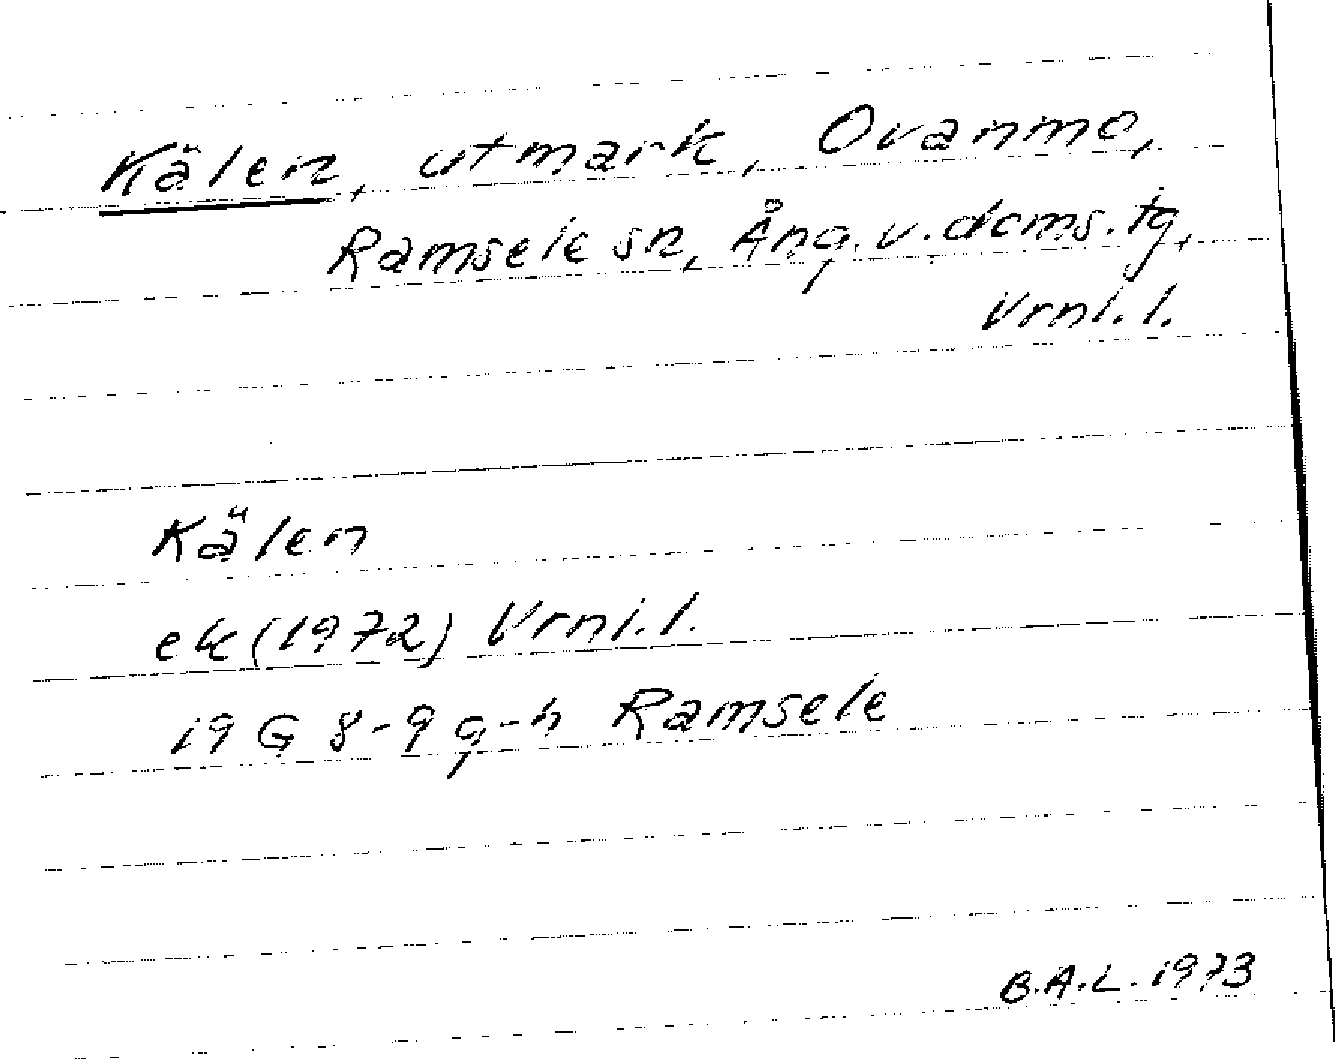 Kälen, utmark, Ovanmo,
Ramsele sn, Ång. v. doms. tg,
Vrnl. l.
Kälen
ek (1972) Vrnl. l.
19 G 8-9 g-h Ramsele
B.A.L. 1973